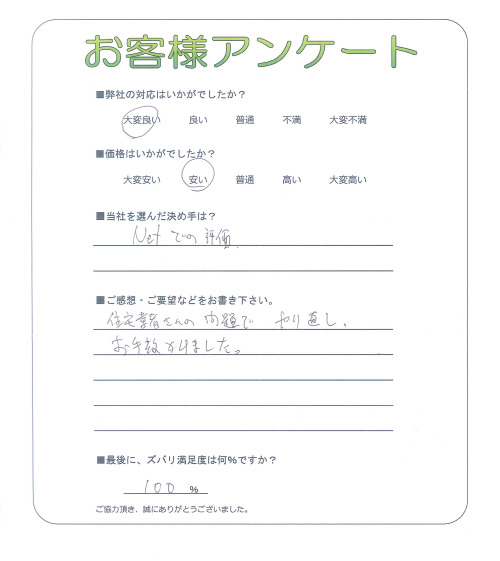 お客様アンケート
■弊社の対応はいかがでしたか?
大変良い 良い 普通 不満 大変不満
■価格はいかがでしたか?
大変安い 安い 普通 高い 大変高い
■当社を選んだ決め手は?
Netでの評価
■ご感想・ご要望などをお書き下さい。
住宅業者さんの問題で やり直し、
お手数かけました。
■最後に、ズバリ満足度は何%ですか?
100 %
ご協力頂き、誠にありがとうございました。